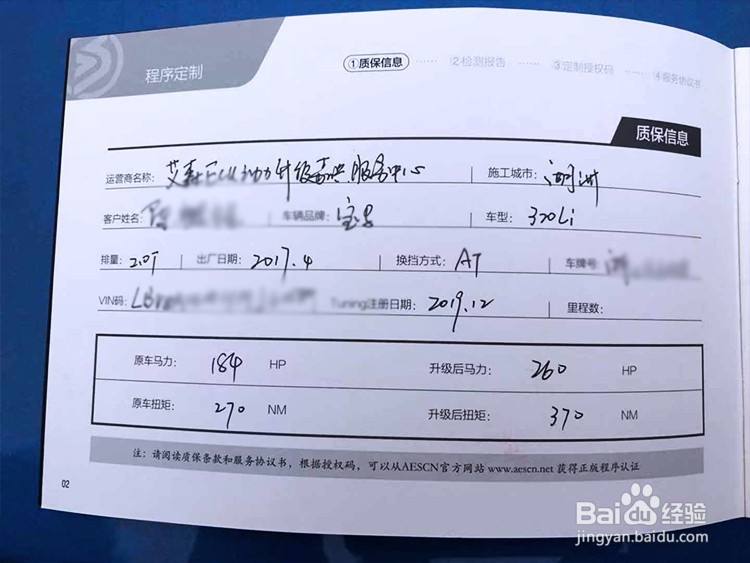 程序定制
①质保信息 ······ ②检测报告 ······ ③定制授权码 ······ ④服务协议书
质保信息
运营商名称: 艾森ECU动力升级嘉兴服务中心 施工城市: 湖州
客户姓名: 车辆品牌: 宝马 车型: 320Li
排量: 2.0T 出厂日期: 2017.4 换挡方式: AT 车牌号:
VIN码: LB Tuning注册日期: 2019.12 里程数:
原车马力: 184 HP 升级后马力: 260 HP
原车扭矩: 270 NM 升级后扭矩: 370 NM
注: 请阅读质保条款和服务协议书，根据授权码，可以从AESCN官方网站 www.aescn.net 获得正版程序认证
02
Baidu经验
jingyan.baidu.com